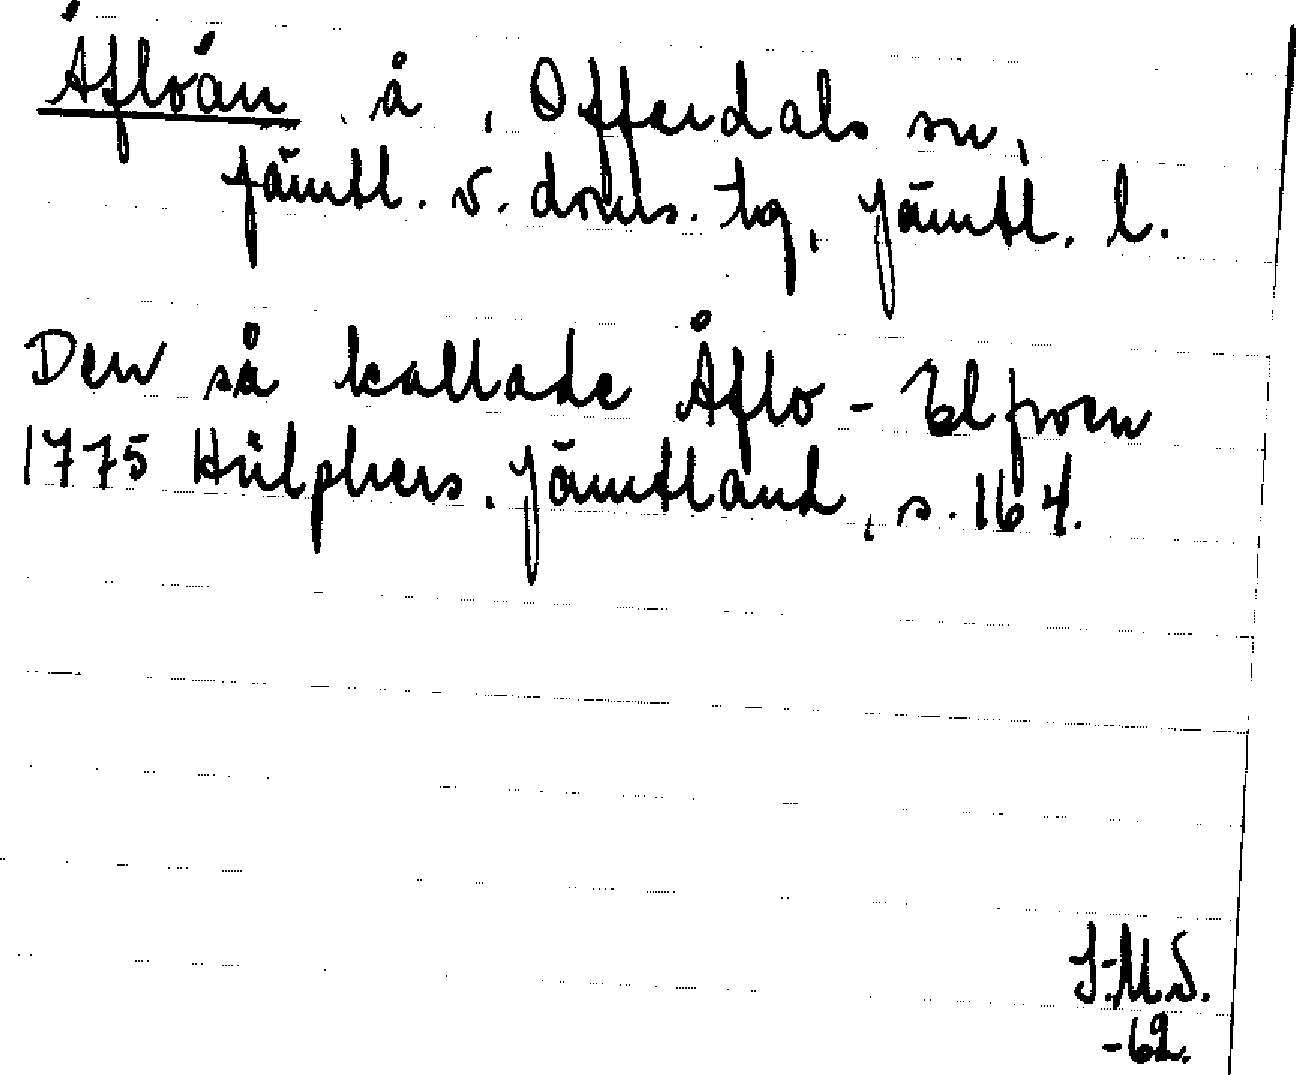 Åfloån, å, Offerdals sn,
Jämtl. v. doms. tg, Jämtl. l.
Den så kallade Åflo-Elfwen
1775 Hülphers. Jämtland, s. 164.
J.M.S.
-62.